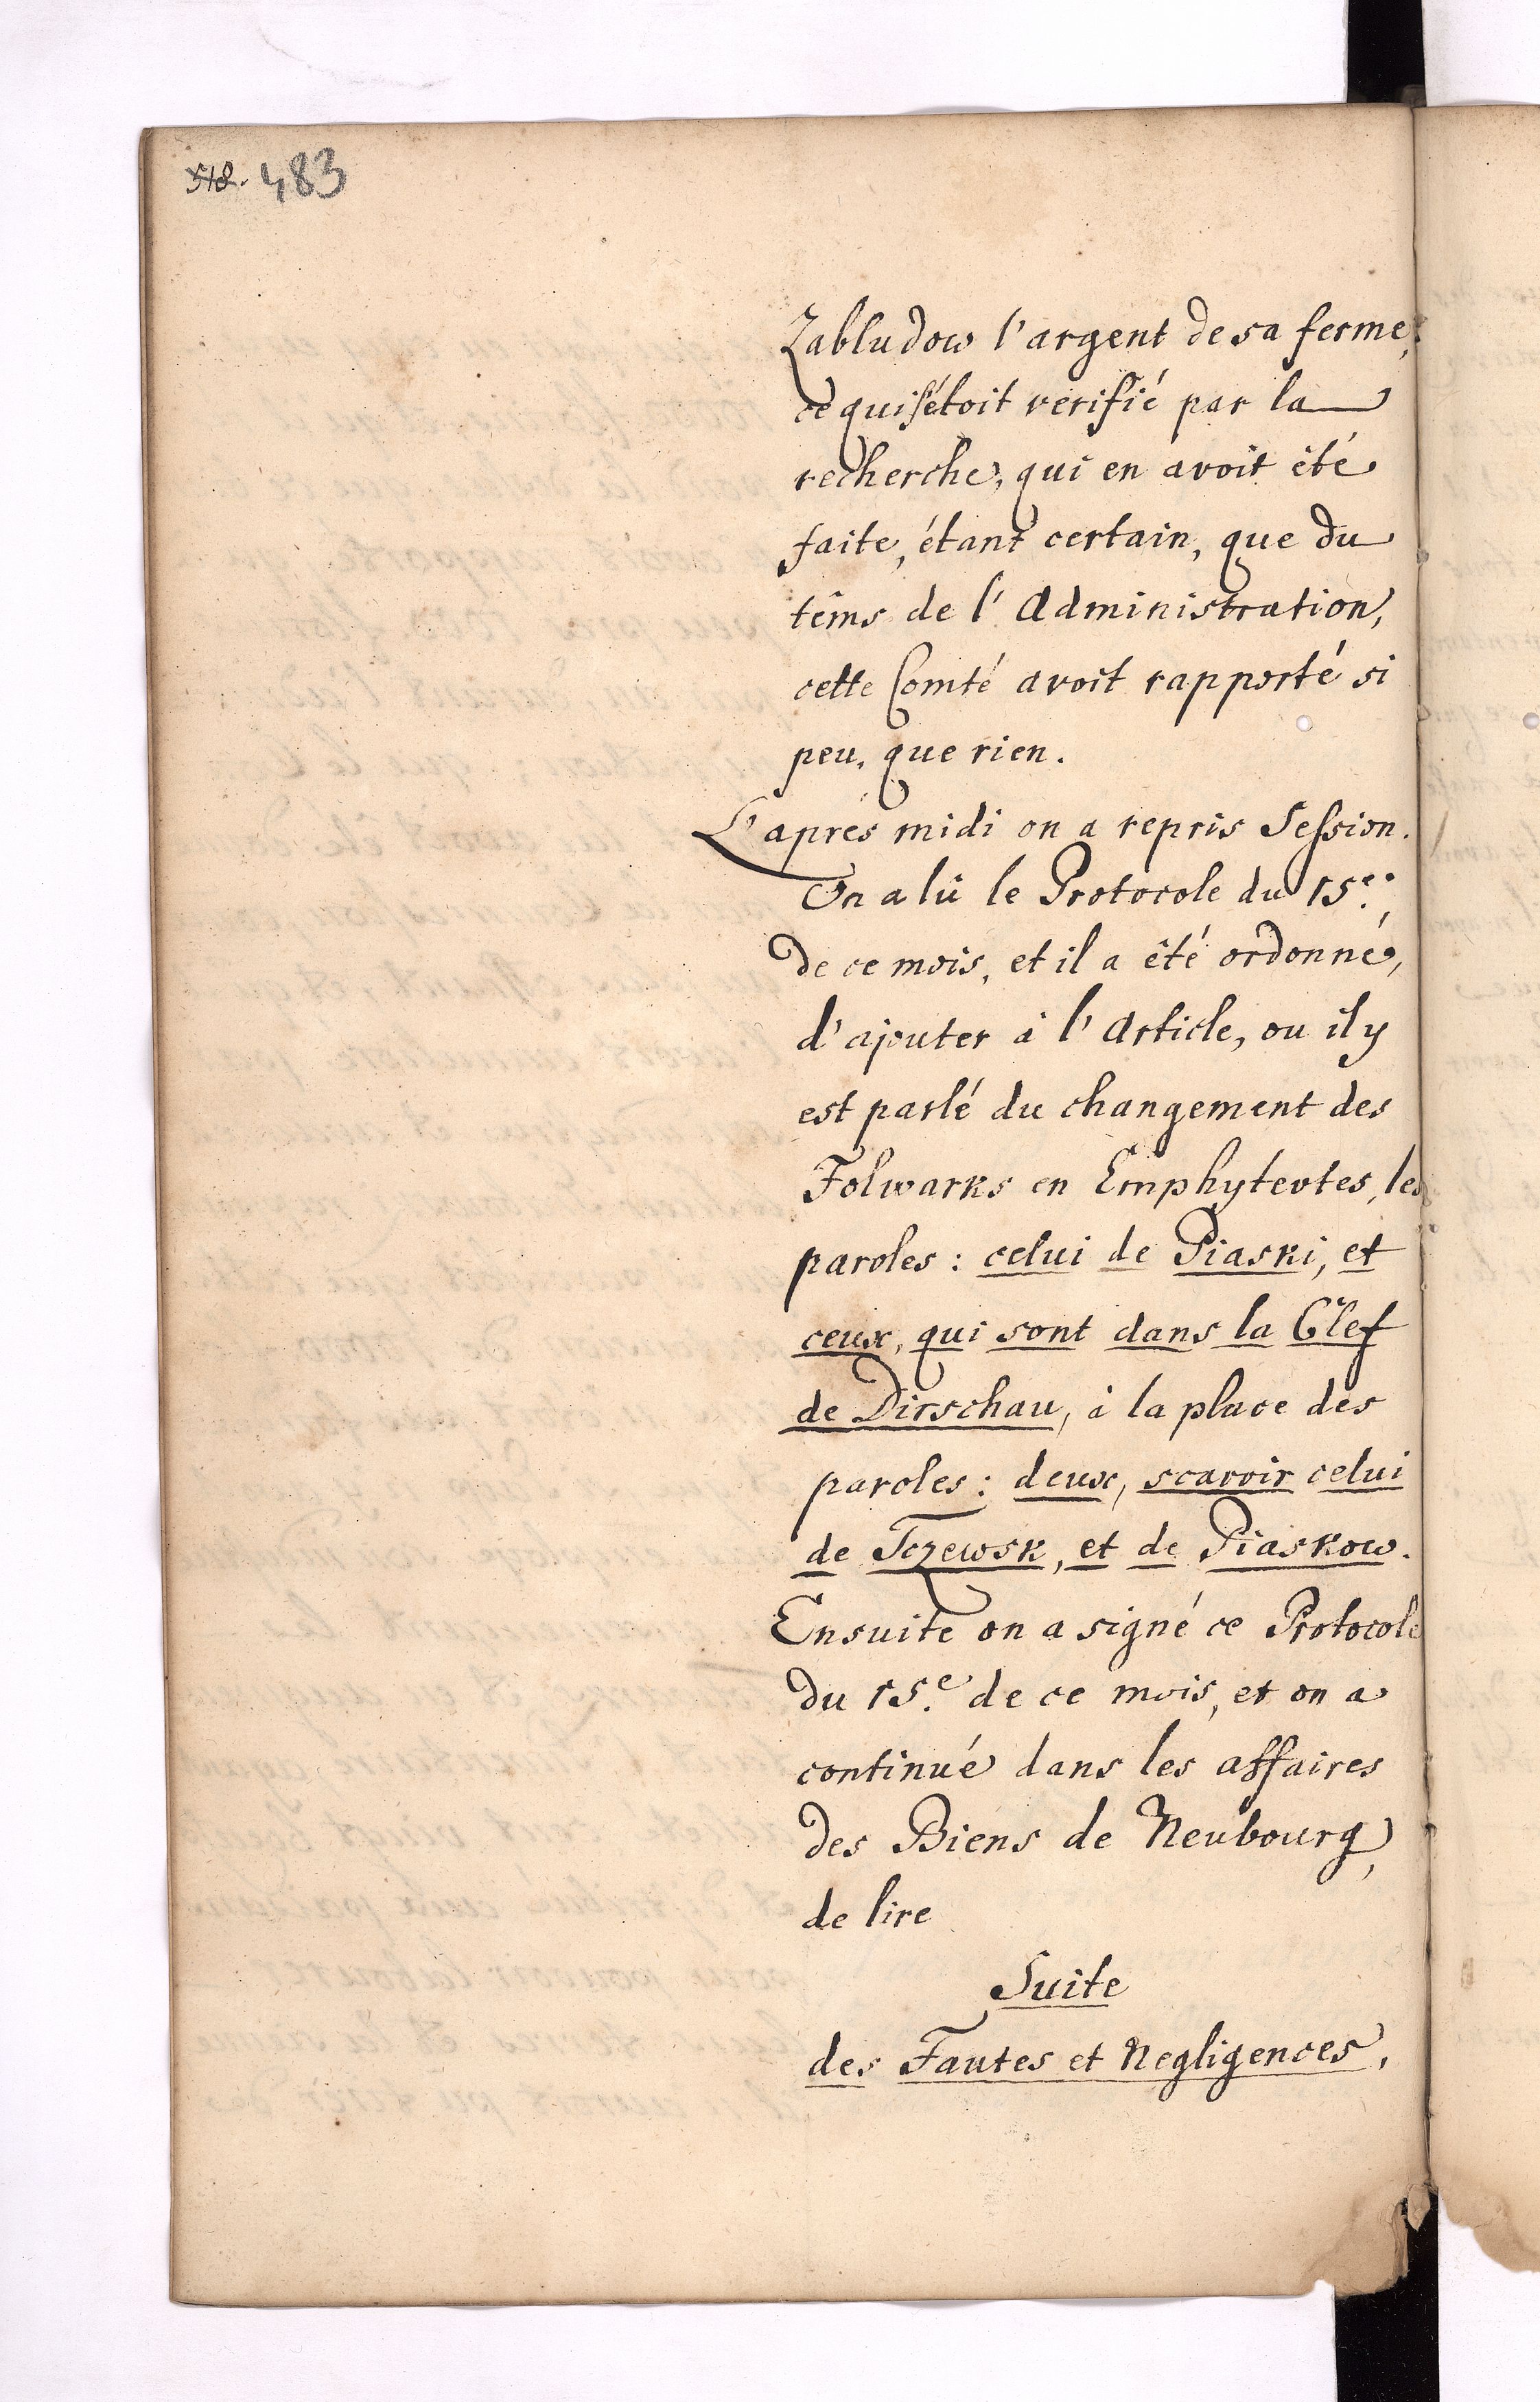 518. 483
Zabludow l'argent de sa ferme,
ce qui s'étoit verifié par la
recherche, qui en avoit été
faite, étant certain, que du
têms de l'Administration,
cette Comté avoit rapporté si
peu, que rien.
L'aprés midi on a repris Session.
On a lû le Protocole du 15e.,
de ce mois, et il a été ordonné,
d'ajouter à l'Article, ou il y
est parlé du changement des
Folwarks en Emphyteotes, les
paroles: celui de Piaski, et
ceux, qui sont dans la Clef
de Dirschau, à la place des
paroles: deux, scavoir celui
de Tczewsk, et de Piaskow.
Ensuite on a signé ce Protocole
du 15e. de ce mois, et on a
continué dans les affaires
des Biens de Neubourg,
de lire
Suite
des Fautes et Negligences,